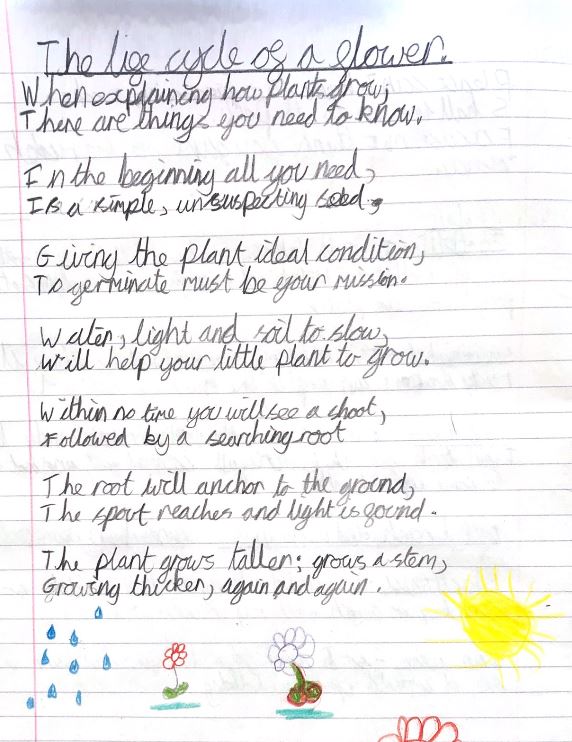 The life cycle of a flower.
When explaining how plants grow,
There are things you need to know.
In the beginning all you need,
Is a simple, unsuspecting seed,
Giving the plant ideal condition,
To germinate must be your mission.
Water, light and soil to slow,
Will help your little plant to grow.
Within no time you will see a shoot,
Followed by a searching root
The root will anchor to the ground,
The spout reaches and light is found.
The plant grows taller; grows a stem,
Growing thicker, again and again.